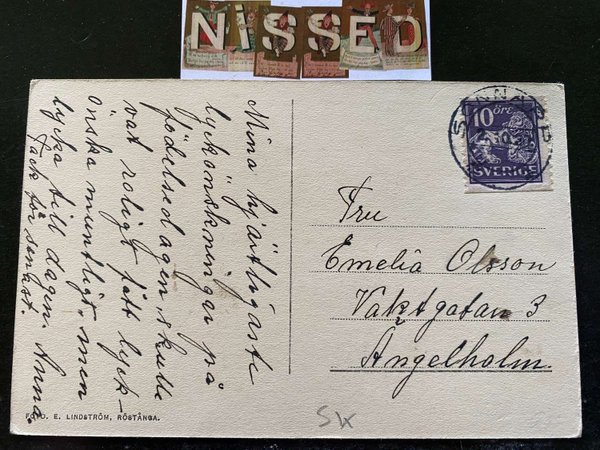 NiSSED
Mina hjärtligaste
lyckönskningar på
födelsedagen skulle
vat roligt fått lyck-
önska muntligt, men
lycka till dagen. Anna.
Tack för senast.
FOTO. E. LINDSTRÖM, RÖSTÅNGA.
10 öre
SVERIGE
Fru
Emelia Olsson
Vaktgatan 3
Ängelholm.